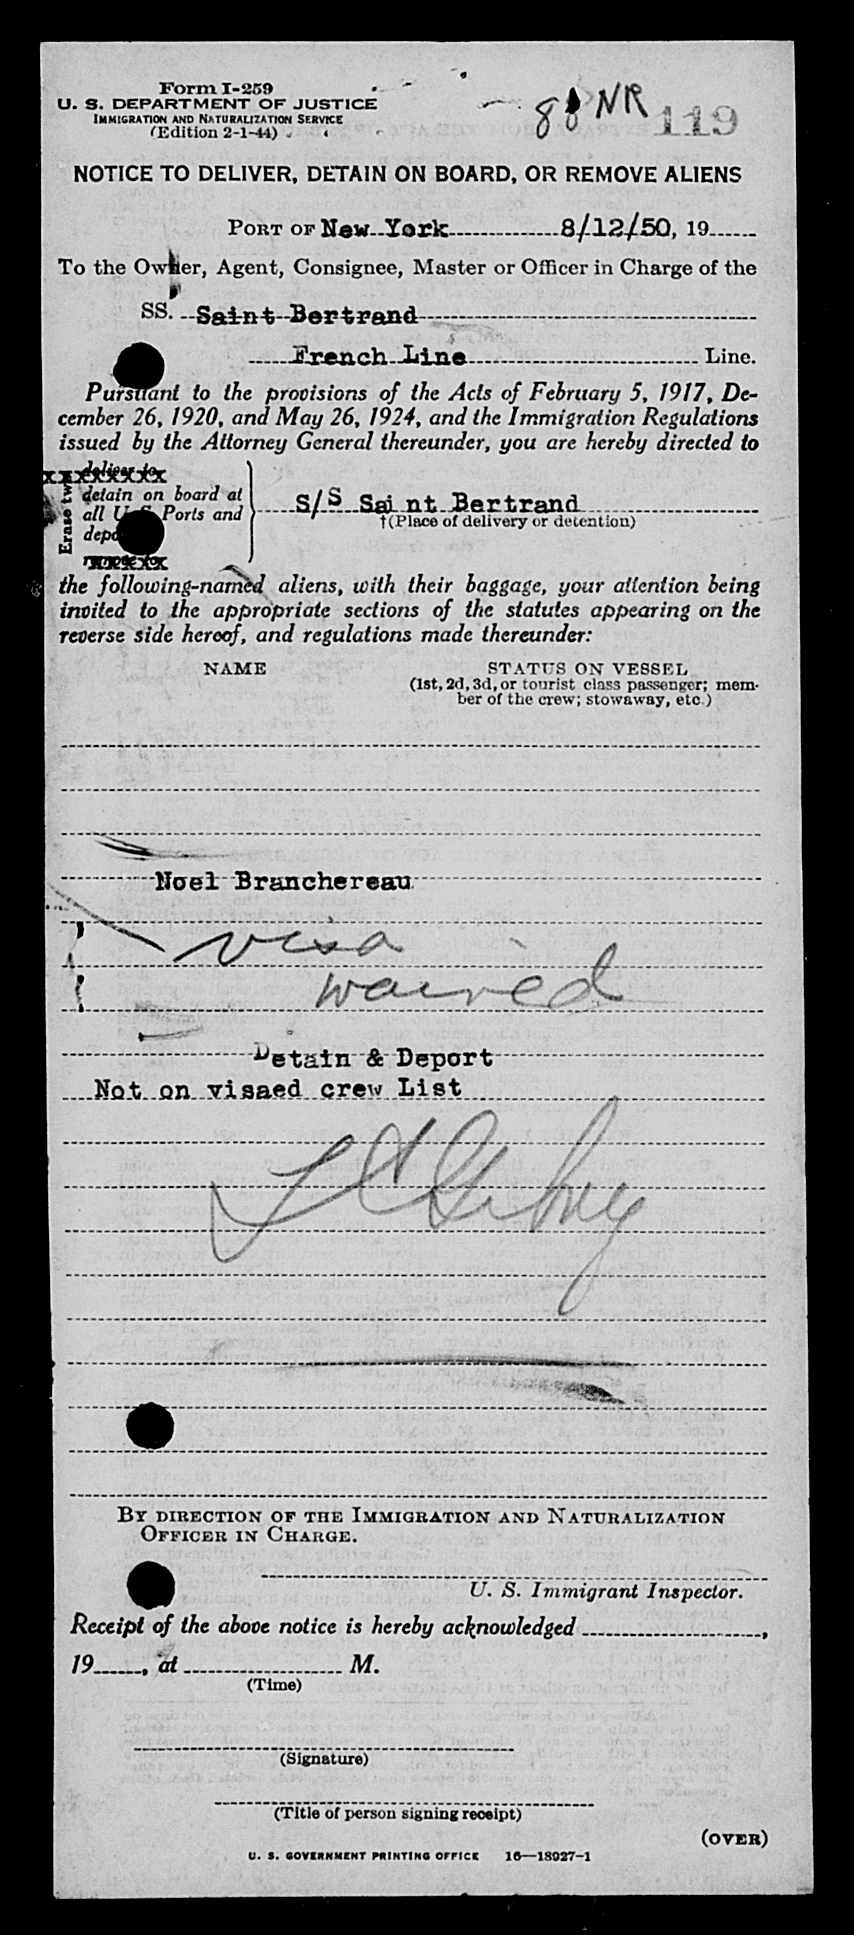 Form I-259
U. S. DEPARTMENT OF JUSTICE
IMMIGRATION AND NATURALIZATION SERVICE
(Edition 2-1-44)
88 NR 119
NOTICE TO DELIVER, DETAIN ON BOARD, OR REMOVE ALIENS
PORT OF New York 8/12/50, 19
To the Owner, Agent, Consignee, Master or Officer in Charge of the
SS. Saint Bertrand
French Line Line.
Pursuant to the provisions of the Acts of February 5, 1917, De-
cember 26, 1920, and May 26, 1924, and the Immigration Regulations
issued by the Attorney General thereunder, you are hereby directed to
Erase two
deliver to
detain on board at
all U. S. Ports and
S/S Saint Bertrand
†(Place of delivery or detention)
the following-named aliens, with their baggage, your attention being
invited to the appropriate sections of the statutes appearing on the
reverse side hereof, and regulations made thereunder:
NAME STATUS ON VESSEL
(1st, 2d, 3d, or tourist class passenger; mem-
ber of the crew; stowaway, etc.)
Noel Branchereau
visa
waived
Detain & Deport
Not on visaed crew List
BY DIRECTION OF THE IMMIGRATION AND NATURALIZATION
OFFICER IN CHARGE.
U. S. Immigrant Inspector.
Receipt of the above notice is hereby acknowledged ,
19 , at M.
(Time)
(Signature)
(Title of person signing receipt)
(OVER)
U. S. GOVERNMENT PRINTING OFFICE 16—18927-1